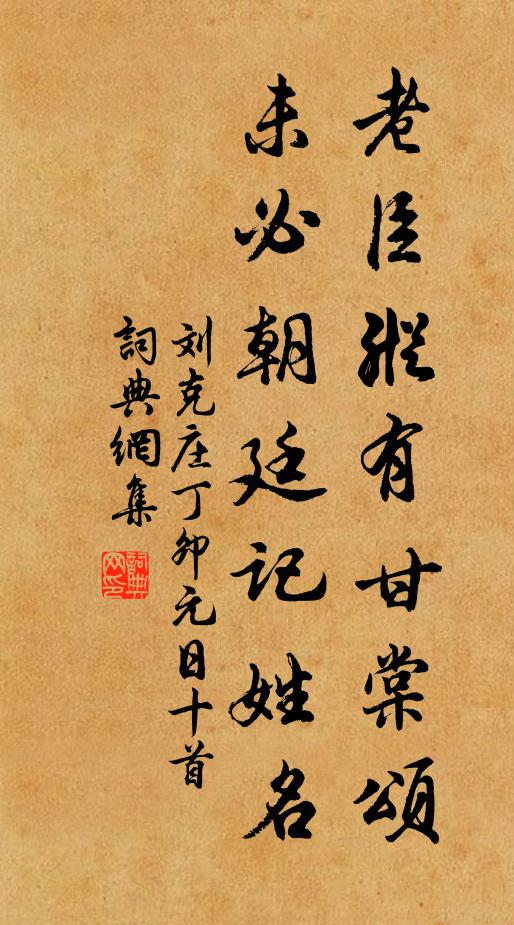 老臣縱有甘棠頌
未必朝廷記姓名
刘克庄丁卯元日十首
詞典網集
詞典
网印